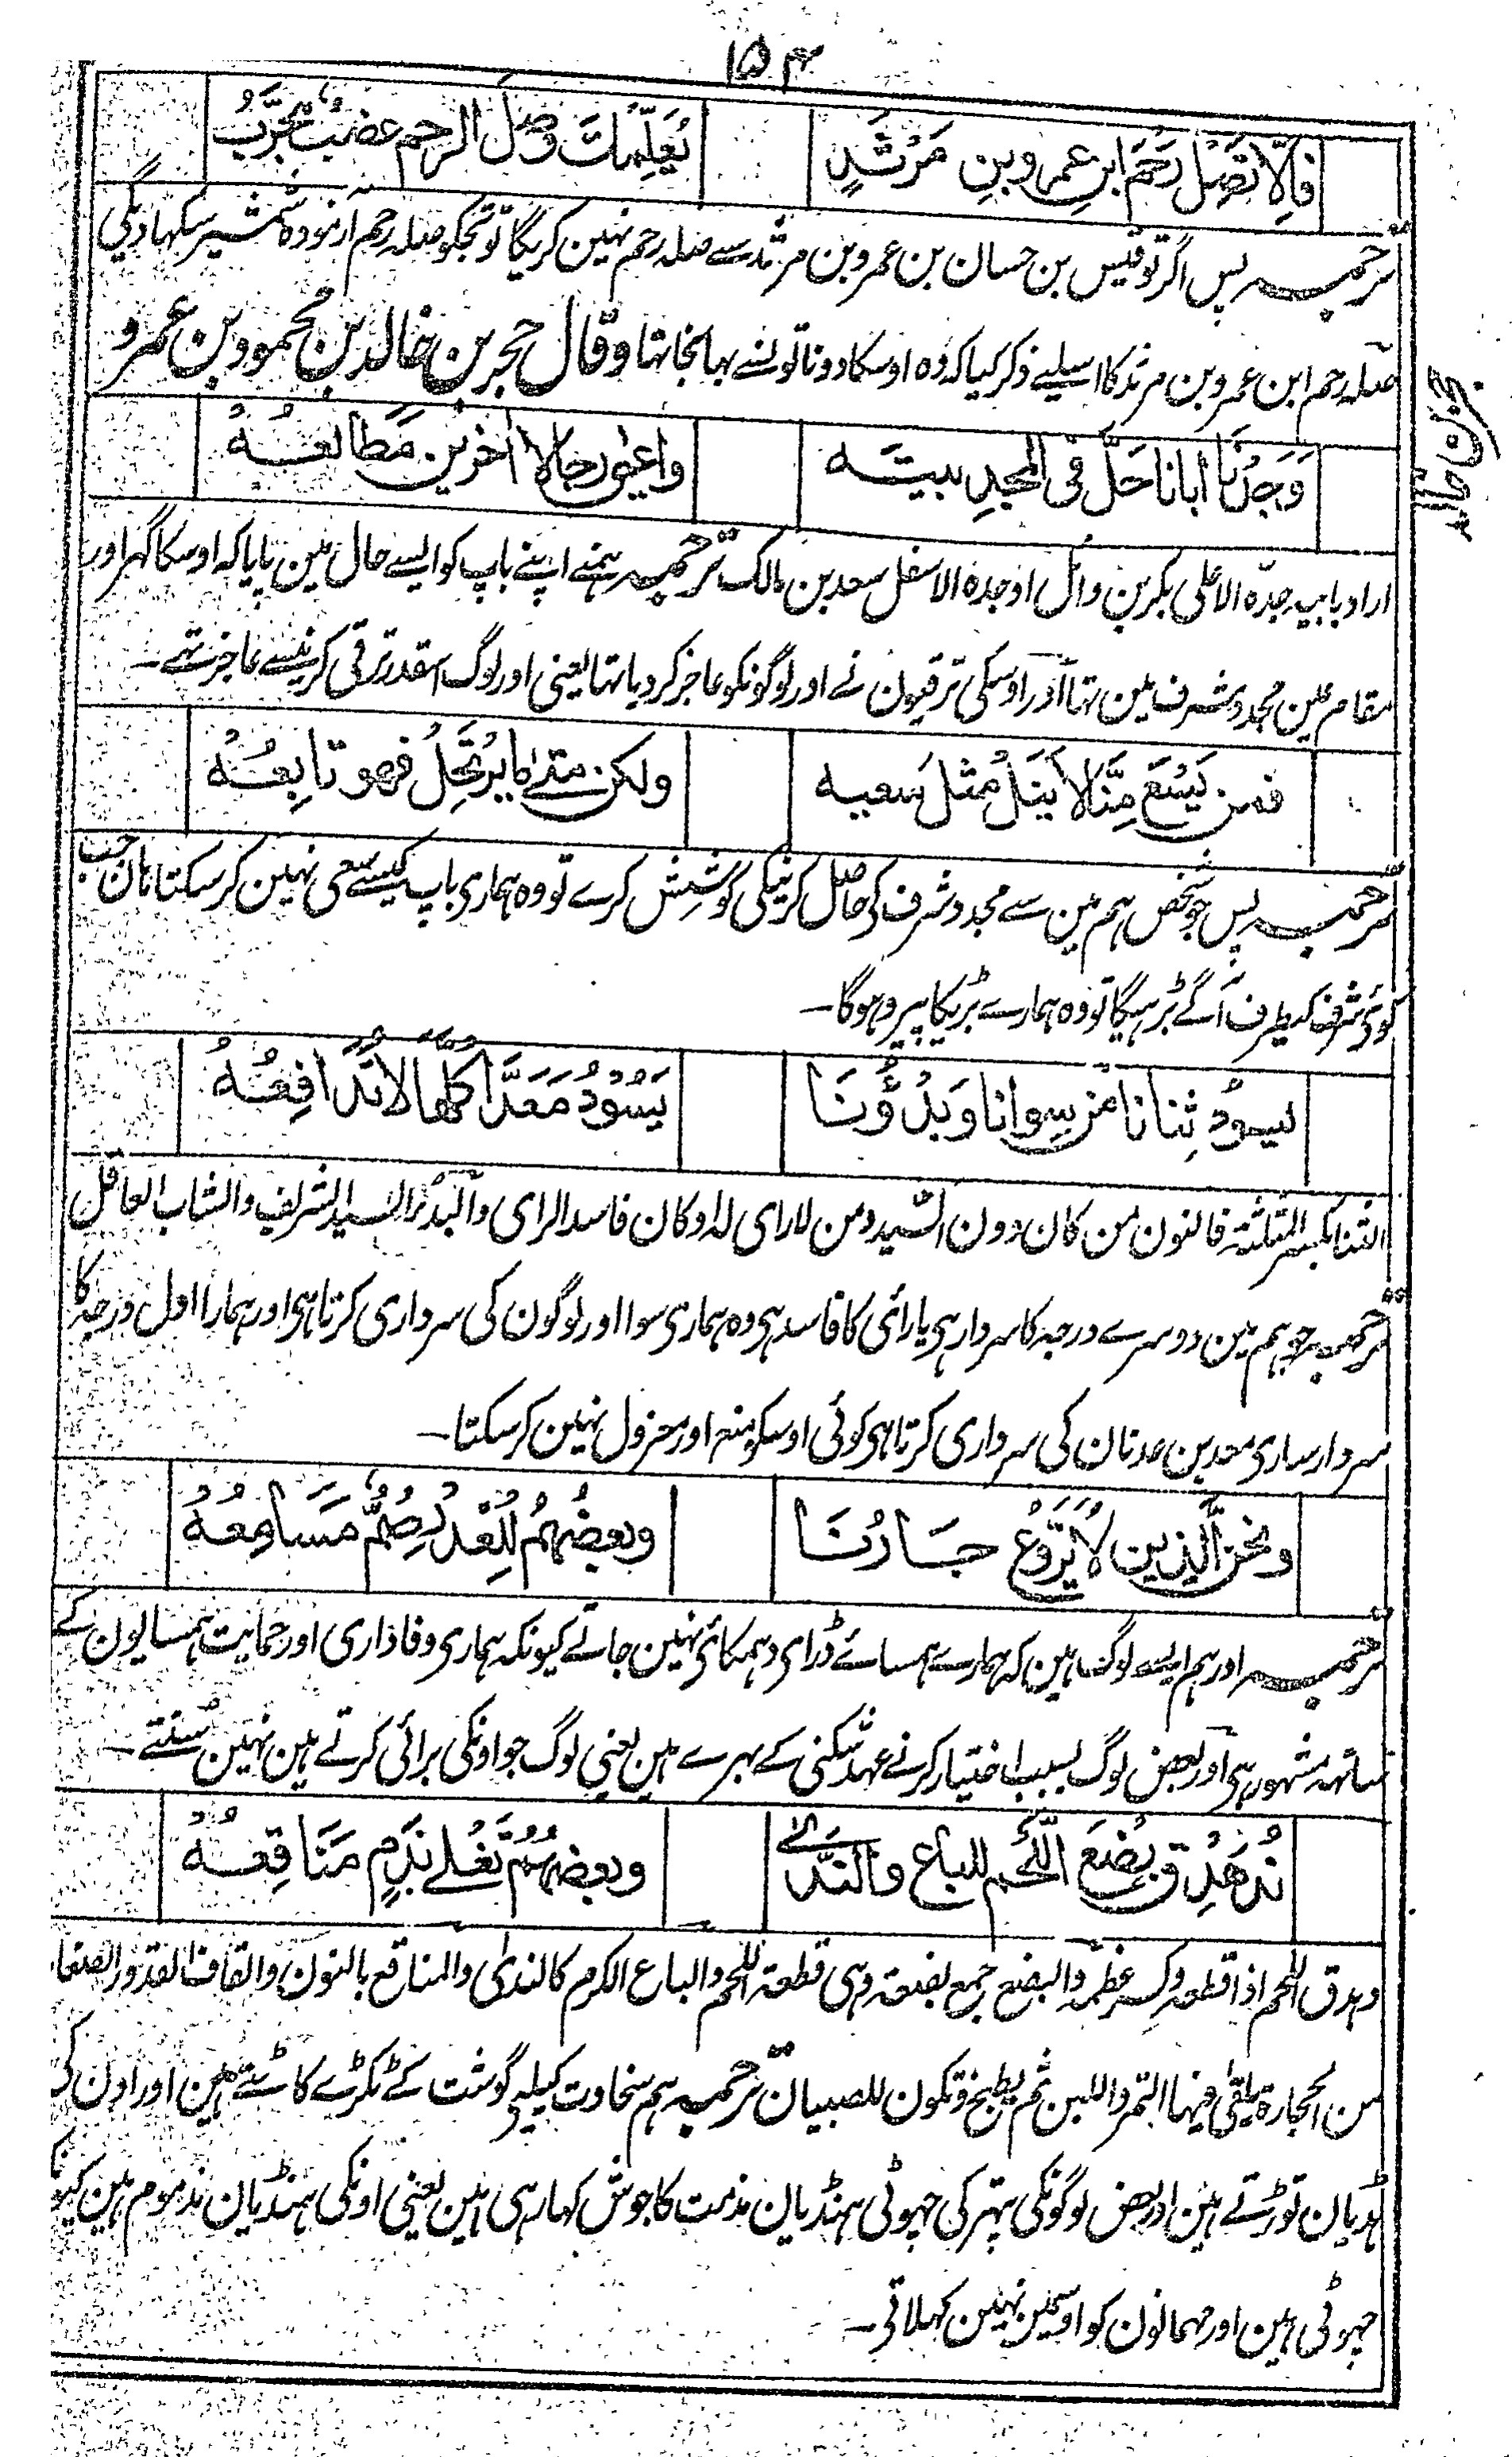 ۱۵۴
فَاِلَّا تَصِلْ رَحْمَ ابنِ عمرو بنِ مَرْثَدٍ يُعَلِّمْكَ وَصْلَ الرحم عضبٌ مُجَرَّبُ
ترجمہ پس اگر تو قیس بن حسان بن عمرو بن مرثد سے صلہ رحم نہین کریگا تو تجکو صلہ رحم آزمودہ شمشیر سکہا دیگی
صلہ رحم ابن عمرو بن مرثد کا اسلیے ذکر کیا کہ وہ اوسکا دونا تو لنے بہا نجا تہا وقال حجر بن خالد بن محمود بن عمرو
حجر بن خالد
وَجَدْنَا ابانا حَلَّ فی المجدِ بیتَہ واعیٰی رجالا اٰخرین مَطالعُہُ
اراد بابیہ جدّہ الاعلی بکر بن وائل او جدہ الاسفل سعد بن مالک ترجمہ ہمنے اپنے باپ کو ایسے حال مین پایا کہ اوسکا گہر اور
مقام عین مجد و شرف مین تہا اور اوسکی ترقیون نے اور لوگونکو عاجز کر دیا تہا یعنی اور لوگ اسقدر ترقی کرنیسے عاجز تہے ۔
فمن یَسْعَ مِنَّا لا یَنَلْ مثلَ سَعیہ ولکن متی ما یَرْتَحِلْ فهو تابِعُہُ
ترجمہ پس جو شخص ہم مین سے مجد و شرف کی حاصل کرنیکی کوشش کرے تو وہ ہماری باپ کیسی سعی نہین کرسکتا ہان جب
کوئی شرف کیطرف آگے بڑہیگا تو وہ ہمارے بڑیکا پیرو ہوگا ۔
یسودُ ثِنانا من سِوانا وَبَدْؤُنَا یَسُوْدُ مَعَدًّا کُلَّهَا لا تُدَافِعُہُ
الثنا بکسر المثلثۃ فالنون من کان دون السّید ومن لا رای لہ او کان فاسد الرای والبدء السید الشریف والشاب العاقل
ترجمہ جو ہم مین دوسرے درجہ کا سردار ہی یا رائی کا فاسد ہی وہ ہماری سوا اور لوگون کی سرداری کرتا ہی اور ہمارا اول درجہ کا
سردار ساری معد بن عدنان کی سرداری کرتا ہی کوئی اوسکو منع اور معزول نہین کرسکتا ۔
ونحن الّذین لا یُرَوَّعُ جَارُنَا وبعضُہُمُ لِلْغَدْرِ صُمٌّ مَسَامِعُہُ
ترجمہ اور ہم ایسے لوگ ہین کہ ہمارے ہمسائے ڈرائے دہمکائی نہین جاتے کیونکہ ہماری وفاداری اور حمایت ہمسایون کے
ساتہہ مشہور ہی اور بعض لوگ بسبب اختیار کرنے عہد شکنی کے بہرے ہین یعنی لوگ جو اونکی برائی کرتے ہین نہین سنتے ۔
نُدَهْدِقُ بِضَعَ اللَّحم للباع والنَّدٰی وبعضہُمُ تَغْلی بذَمٍ مَنَاقِعُہُ
دہدق اللحم اذا قطعہ وکسر عظمہ والبضع جمع بضعۃ وہی قطعۃ اللحم والباع الکرم کالندی والمناقع بالنون والقاف القدور الصغار
من الحجارۃ یلقی فیہا التمر واللبن ثم یطبخ وتکون للصبیان ترجمہ ہم سخاوت کیلیے گوشت کے ٹکڑے کاٹتے ہین اور اون کی
ہڈیان توڑتے ہین اور بعض لوگونکی پتہر کی چہوٹی ہنڈیان مذمت کا جوش کہا رہی ہین یعنی اونکی ہنڈیان مذموم ہین کیونکہ
چہوٹی ہین اور مہمانون کو اوسمین نہین کہلاتی ۔